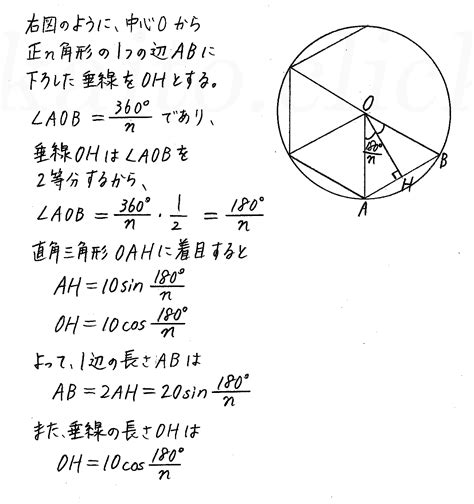 右図のように、中心Oから
正n角形の1つの辺ABに
下ろした垂線をOHとする。
∠AOB = 360°/n であり、
垂線OHは∠AOBを
2等分するから、
∠AOB = 360°/n · 1/2 = 180°/n
直角三角形OAHに着目すると
AH = 10 sin 180°/n
OH = 10 cos 180°/n
よって、1辺の長さABは
AB = 2AH = 20 sin 180°/n
また、垂線の長さOHは
OH = 10 cos 180°/n
O
180°/n
B
H
A